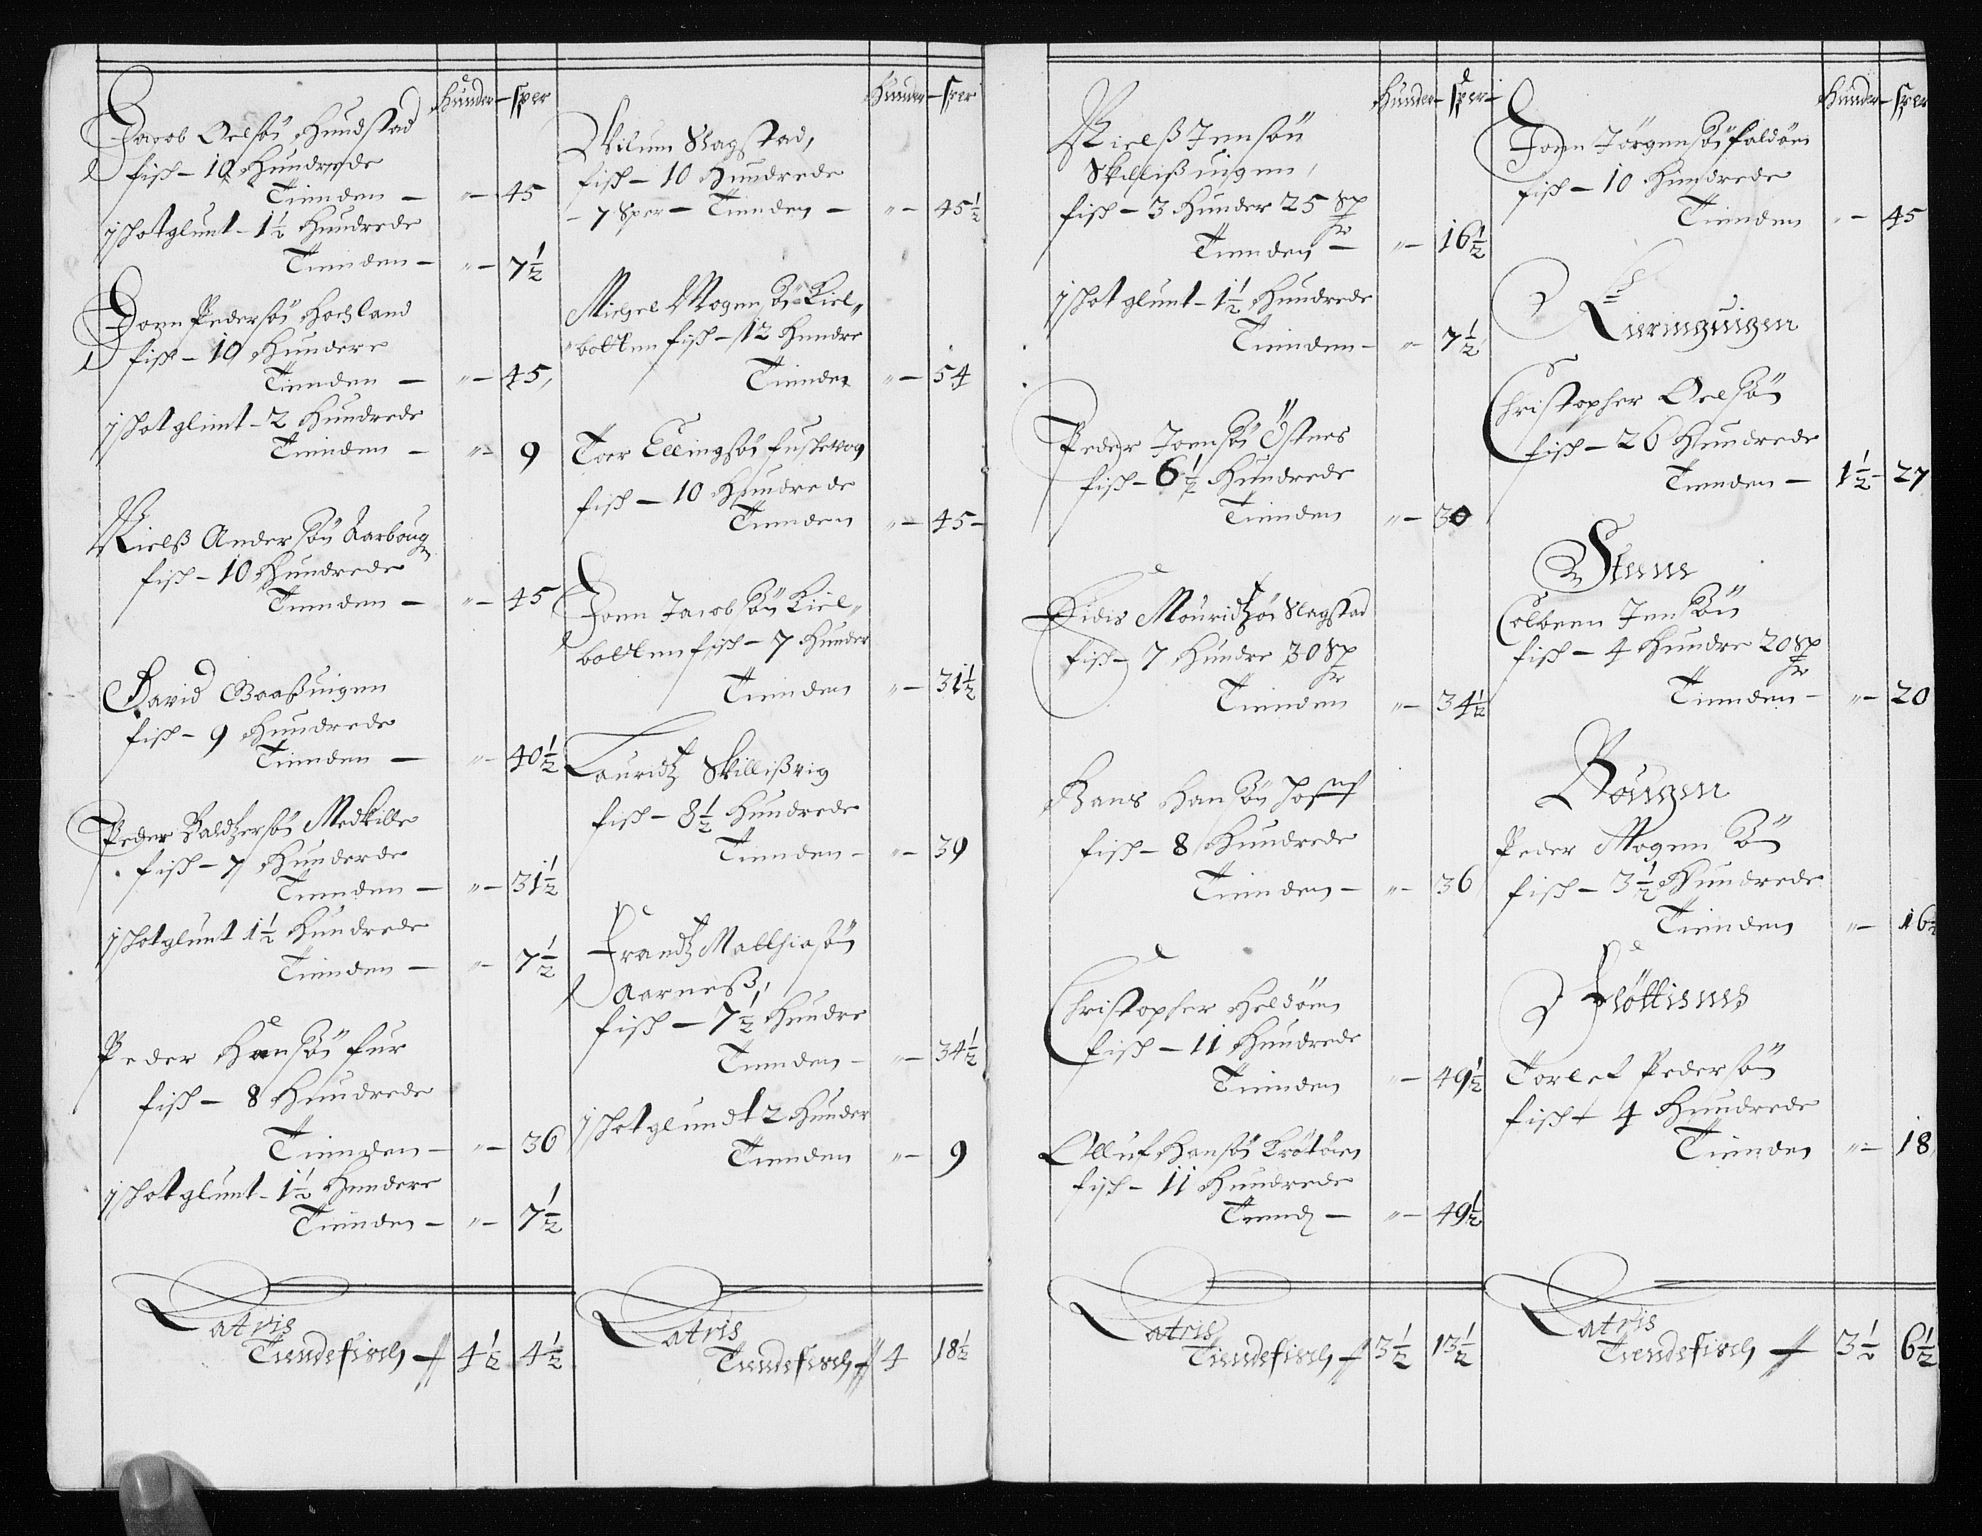 Hunder – sper
Jacob Oelsøn Hundstad
fisk – 10 Hundrede
Tienden – „ – 45
j shotglunt – 1½ Hundrede
Tienden – „ – 7½
Joen Pedersøn Hochland
fisk – 10 Hundere
Tienden – „ – 45,
j shotglunt – 2 Hundrede
Tienden – „ – 9
Nielß Andersøn
fisk – 10 Hundrede
Tienden – „ – 45
David Baaßuigen
fisk – 9 Hundrede
Tienden – „ – 40½
Peder Baldtzersøn Medkille
fisk – 7 Hunderde
Tienden – „ – 31½
j shotglunt 1½ Hundrede
Tienden – „ – 7½
Peder Hansøn fur
fisk – 8 Hundrede
Tienden – „ – 36
j shotglunt – 1½ Hundere
Tienden – „ – 7½
Latris
Tiendefisch 4½ 4½
Hunder – sper
Wilum Slagstad,
fisk – 10 Hundrede
– 7 Sper – Tienden – „ – 45½
Michel Mogensøn Kiel„
botten fisk – 12 Hundre
Tienden „ – 54
Toer Ellingsøn fuskevog
fisk – 10 Hundrede
Tienden „ – 45 –
Joen Jacobsøn Kiel„
botten fisk – 7 Hunder
Tienden „ – 31½
Lauridtz Skillißvig
fisk – 8½ Hundrede
Tienden – „ – 39
Frandtz Matthiasøn
Aarneß,
fisk – 7½ Hundre
Tienden – „ – 34½
j shotglundt 2 Hunder
Tienden „ – 9
Latris
Tiendefisch 4 18½
Hunder – sper
Nielß Jensøn
Skillißuigen,
fisk – 3 Hunder 25 Sp
Tienden – „ – 16½
j shotglunt – 1½ Hundrede
Tienden – „ 7½
Peder Joensøn Østnes
fisk – 6½ Hundrede
Tienden „ – 30
Didis Mouridtzøn Slagstad
fisk – 7 Hundre 30 Sp
Tienden „ – 34½
Hans Hansøn
fisk – 8 Hundrede
Tienden – „ – 36
Christopher Heldøen
fisk – 11 Hundrede
Tienden „ – 49½
Olluf Hansøn Krøtøen
fisk – 11 Hundrede
Tiend – „ – 49½
Latris
Tiendefisch 3½ 13½
Hunder – sper
Joen Jørgensøn foldøen
fisk – 10 Hundrede
Tienden „ – 45
Kieringuigen
Christopher Oelsøn
fisk – 26 Hundrede
Tienden – 1½ – 27
Stene
Colbeen Jensøn
fisk – 4 Hundre 20 Sp
Tienden – „ – 20
Bougen
Peder Mogensøn
fisk – 3½ Hundrede
Tienden „ – 16½
Fløttisnes
Torlef Pedersøn
fisk – 4 Hundrede
Tienden „ – 18
Latris
Tiendefisch 3½ 6½